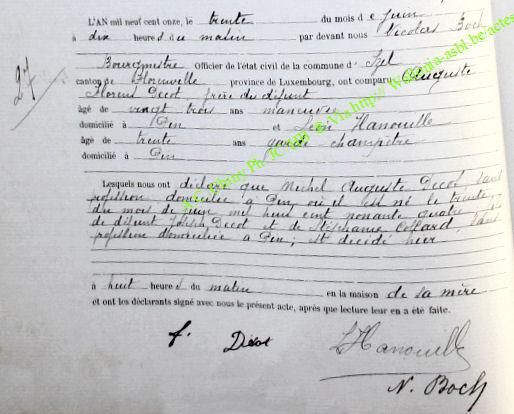 27
L'AN mil neuf cent onze, le trente du mois de juin
à dix heures du matin par devant nous Nicolas Boch
Bourgmestre Officier de l'état civil de la commune d'Izel
canton de Florenville province de Luxembourg, ont comparu Auguste
Florent Décot frère du défunt
âgé de vingt trois ans manœuvre
domicilié à Pin et Léon Hanouille
âgé de trente ans garde champêtre
domicilié à Pin
Lesquels nous ont déclaré que Michel Auguste Décot, sans
profession domicilié à Pin, où il est né le trente
du mois de juin mil huit cent nonante quatre
de défunt Joseph Décot et de Stéphanie Collard, sans
profession domiciliée à Pin; est décédé hier
à huit heures du matin en la maison de sa mère
et ont les déclarants signé avec nous le présent acte, après que lecture leur en a été faite.
f. Décot
L Hanouille
N. Boch
Via http://
asbl.be/actes